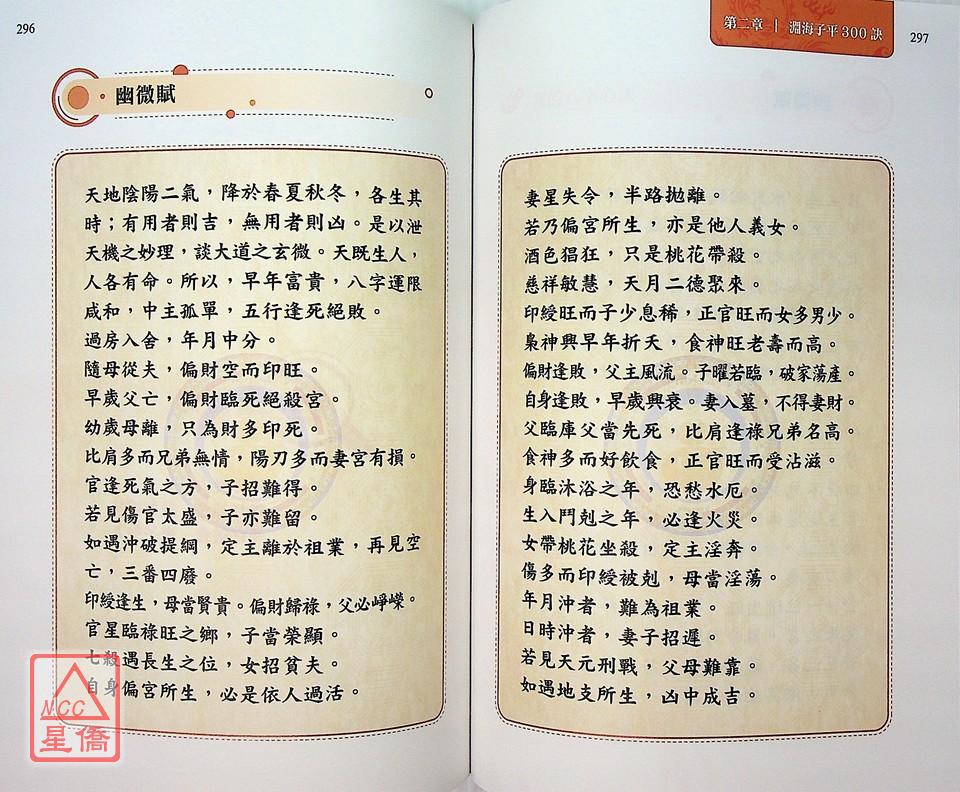 296
幽微賦
天地陰陽二氣，降於春夏秋冬，各生其
時；有用者則吉，無用者則凶。是以泄
天機之妙理，談大道之玄微。天既生人，
人各有命。所以，早年富貴，八字運限
咸和，中主孤單，五行逢死絕敗。
過房入舍，年月中分。
隨母從夫，偏財空而印旺。
早歲父亡，偏財臨死絕殺宮。
幼歲母離，只為財多印死。
比肩多而兄弟無情，陽刃多而妻宮有損。
官逢死氣之方，子招難得。
若見傷官太盛，子亦難留。
如遇沖破提綱，定主離於祖業，再見空
亡，三番四廢。
印綬逢生，母當賢貴。偏財歸祿，父必崢嶸。
官星臨祿旺之鄉，子當榮顯。
七殺遇長生之位，女招貧夫。
自身偏宮所生，必是依人過活。
NCC
星僑
第二章｜淵海子平300訣
297
妻星失令，半路拋離。
若乃偏宮所生，亦是他人義女。
酒色猖狂，只是桃花帶殺。
慈祥敏慧，天月二德聚來。
印綬旺而子少息稀，正官旺而女多男少。
梟神興早年折夭，食神旺老壽而高。
偏財逢敗，父主風流。子曜若臨，破家蕩產。
自身逢敗，早歲興衰。妻入墓，不得妻財。
父臨庫父當先死，比肩逢祿兄弟名高。
食神多而好飲食，正官旺而受沾滋。
身臨沐浴之年，恐愁水厄。
生入鬥剋之年，必逢火災。
女帶桃花坐殺，定主淫奔。
傷多而印綬被剋，母當淫蕩。
年月沖者，難為祖業。
日時沖者，妻子招遲。
若見天元刑戰，父母難靠。
如遇地支所生，凶中成吉。